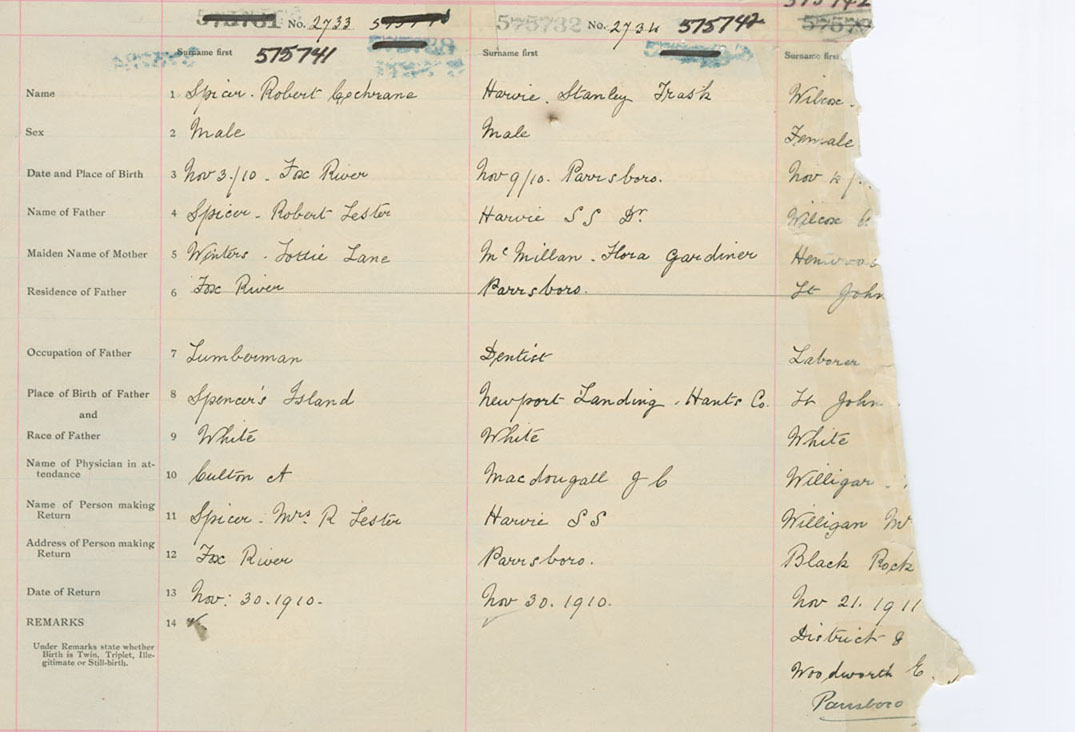 No. 2733 No. 2734 575742
Surname first 575741 Surname first Surname first
Name 1 Spicer. Robert Cochrane Harvie. Stanley Trask Wilcox.
Sex 2 Male Male Female
Date and Place of Birth 3 Nov 3/10 - Fox River Nov 9/10. Parrsboro. Nov
Name of Father 4 Spicer - Robert Lester Harvie S S Dr. Wilcox
Maiden Name of Mother 5 Winters - Lottie Lane McMillan - Flora Gardiner
Residence of Father 6 Fox River Parrsboro. St John
Occupation of Father 7 Lumberman Dentist Laborer
Place of Birth of Father 8 Spencer's Island Newport Landing, Hants Co. St John
and
Race of Father 9 White White White
Name of Physician in at-
tendance 10 A Macdougall J C Willigar
Name of Person making
Return 11 Spicer - Mrs. R Lester Harvie S S Willigan
Address of Person making
Return 12 Fox River Parrsboro. Black Rock
Date of Return 13 Nov: 30.1910. Nov 30.1910. Nov 21.1911
REMARKS 14 District 8
Under Remarks state whether
Birth is Twin, Triplet, Ille-
gitimate or Still-birth.
Woodworth E.
Parrsboro